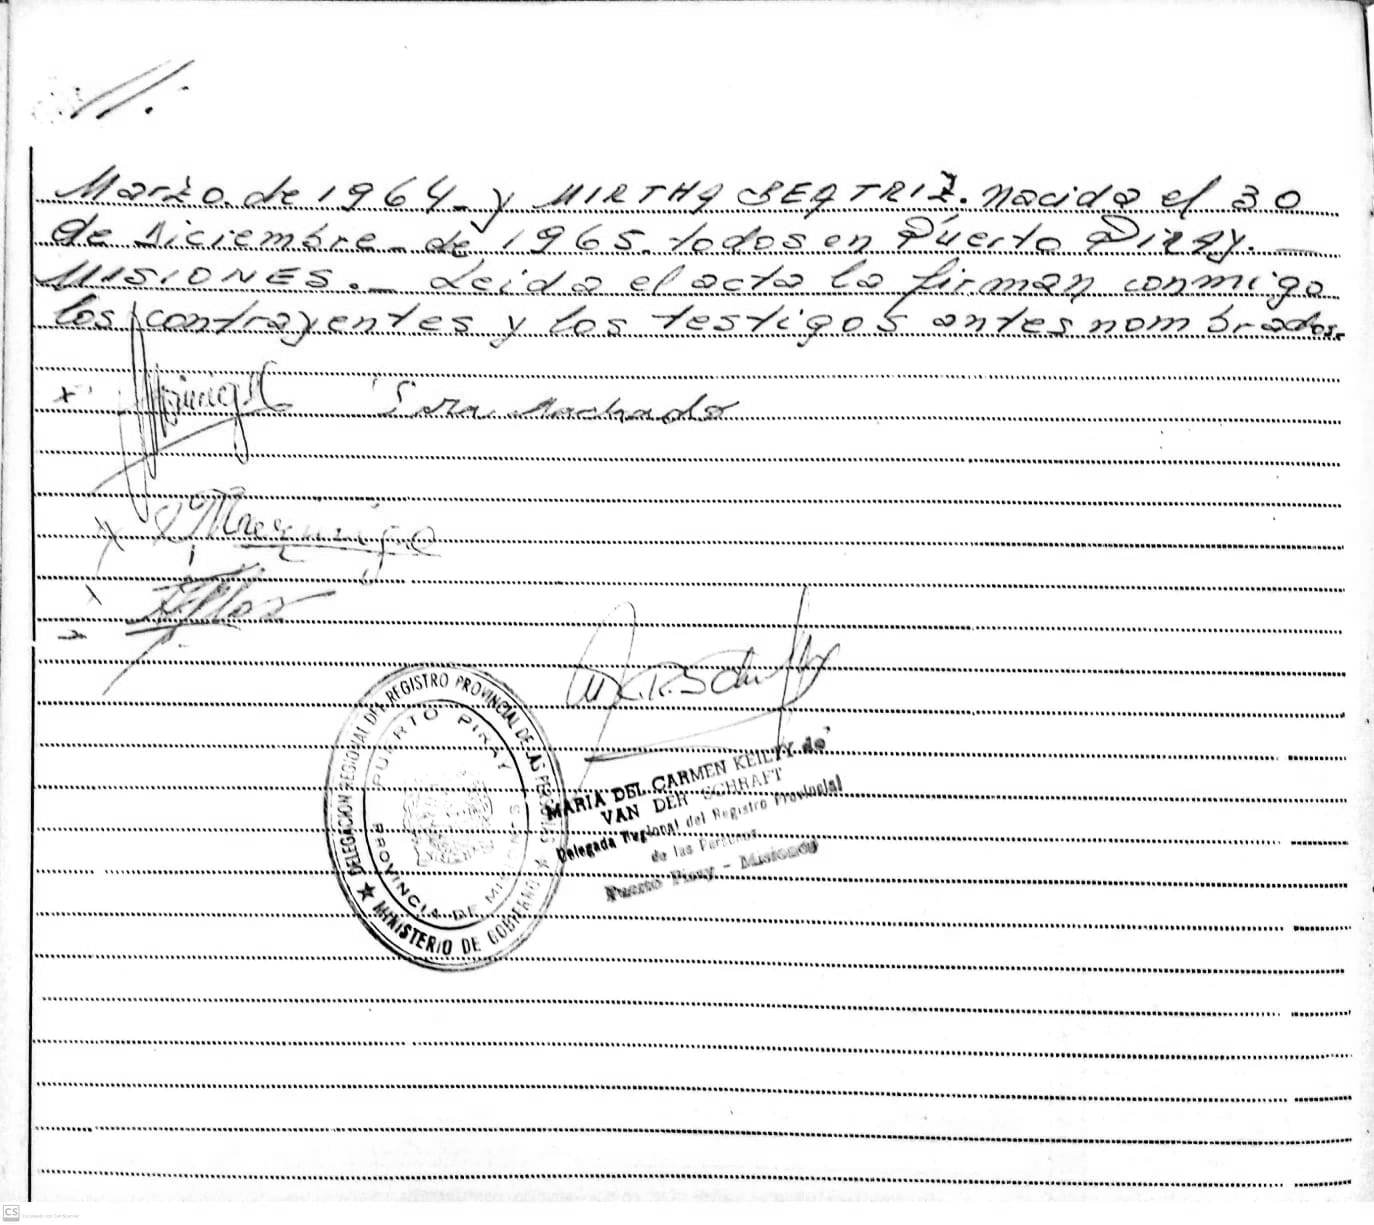 //.
Marzo. de 1964. y MIRTHA BEATRIZ. nacida el 30
de Diciembre. de 1965. todos en Puerto Piray.
MISIONES. Leida el acta la firman conmigo
los contrayentes y los testigos antes nombrados.
Sara Machado
DELEGACION REGIONAL DEL REGISTRO PROVINCIAL DE LAS PERSONAS
PUERTO PIRAY
PROVINCIA DE MISIONES
MINISTERIO DE GOBIERNO
MARIA DEL CARMEN KEILTY de
VAN DER SCHRAFT
Delegada Regional del Registro Provincial
de las Personas
Puerto Piray - Misiones
CS